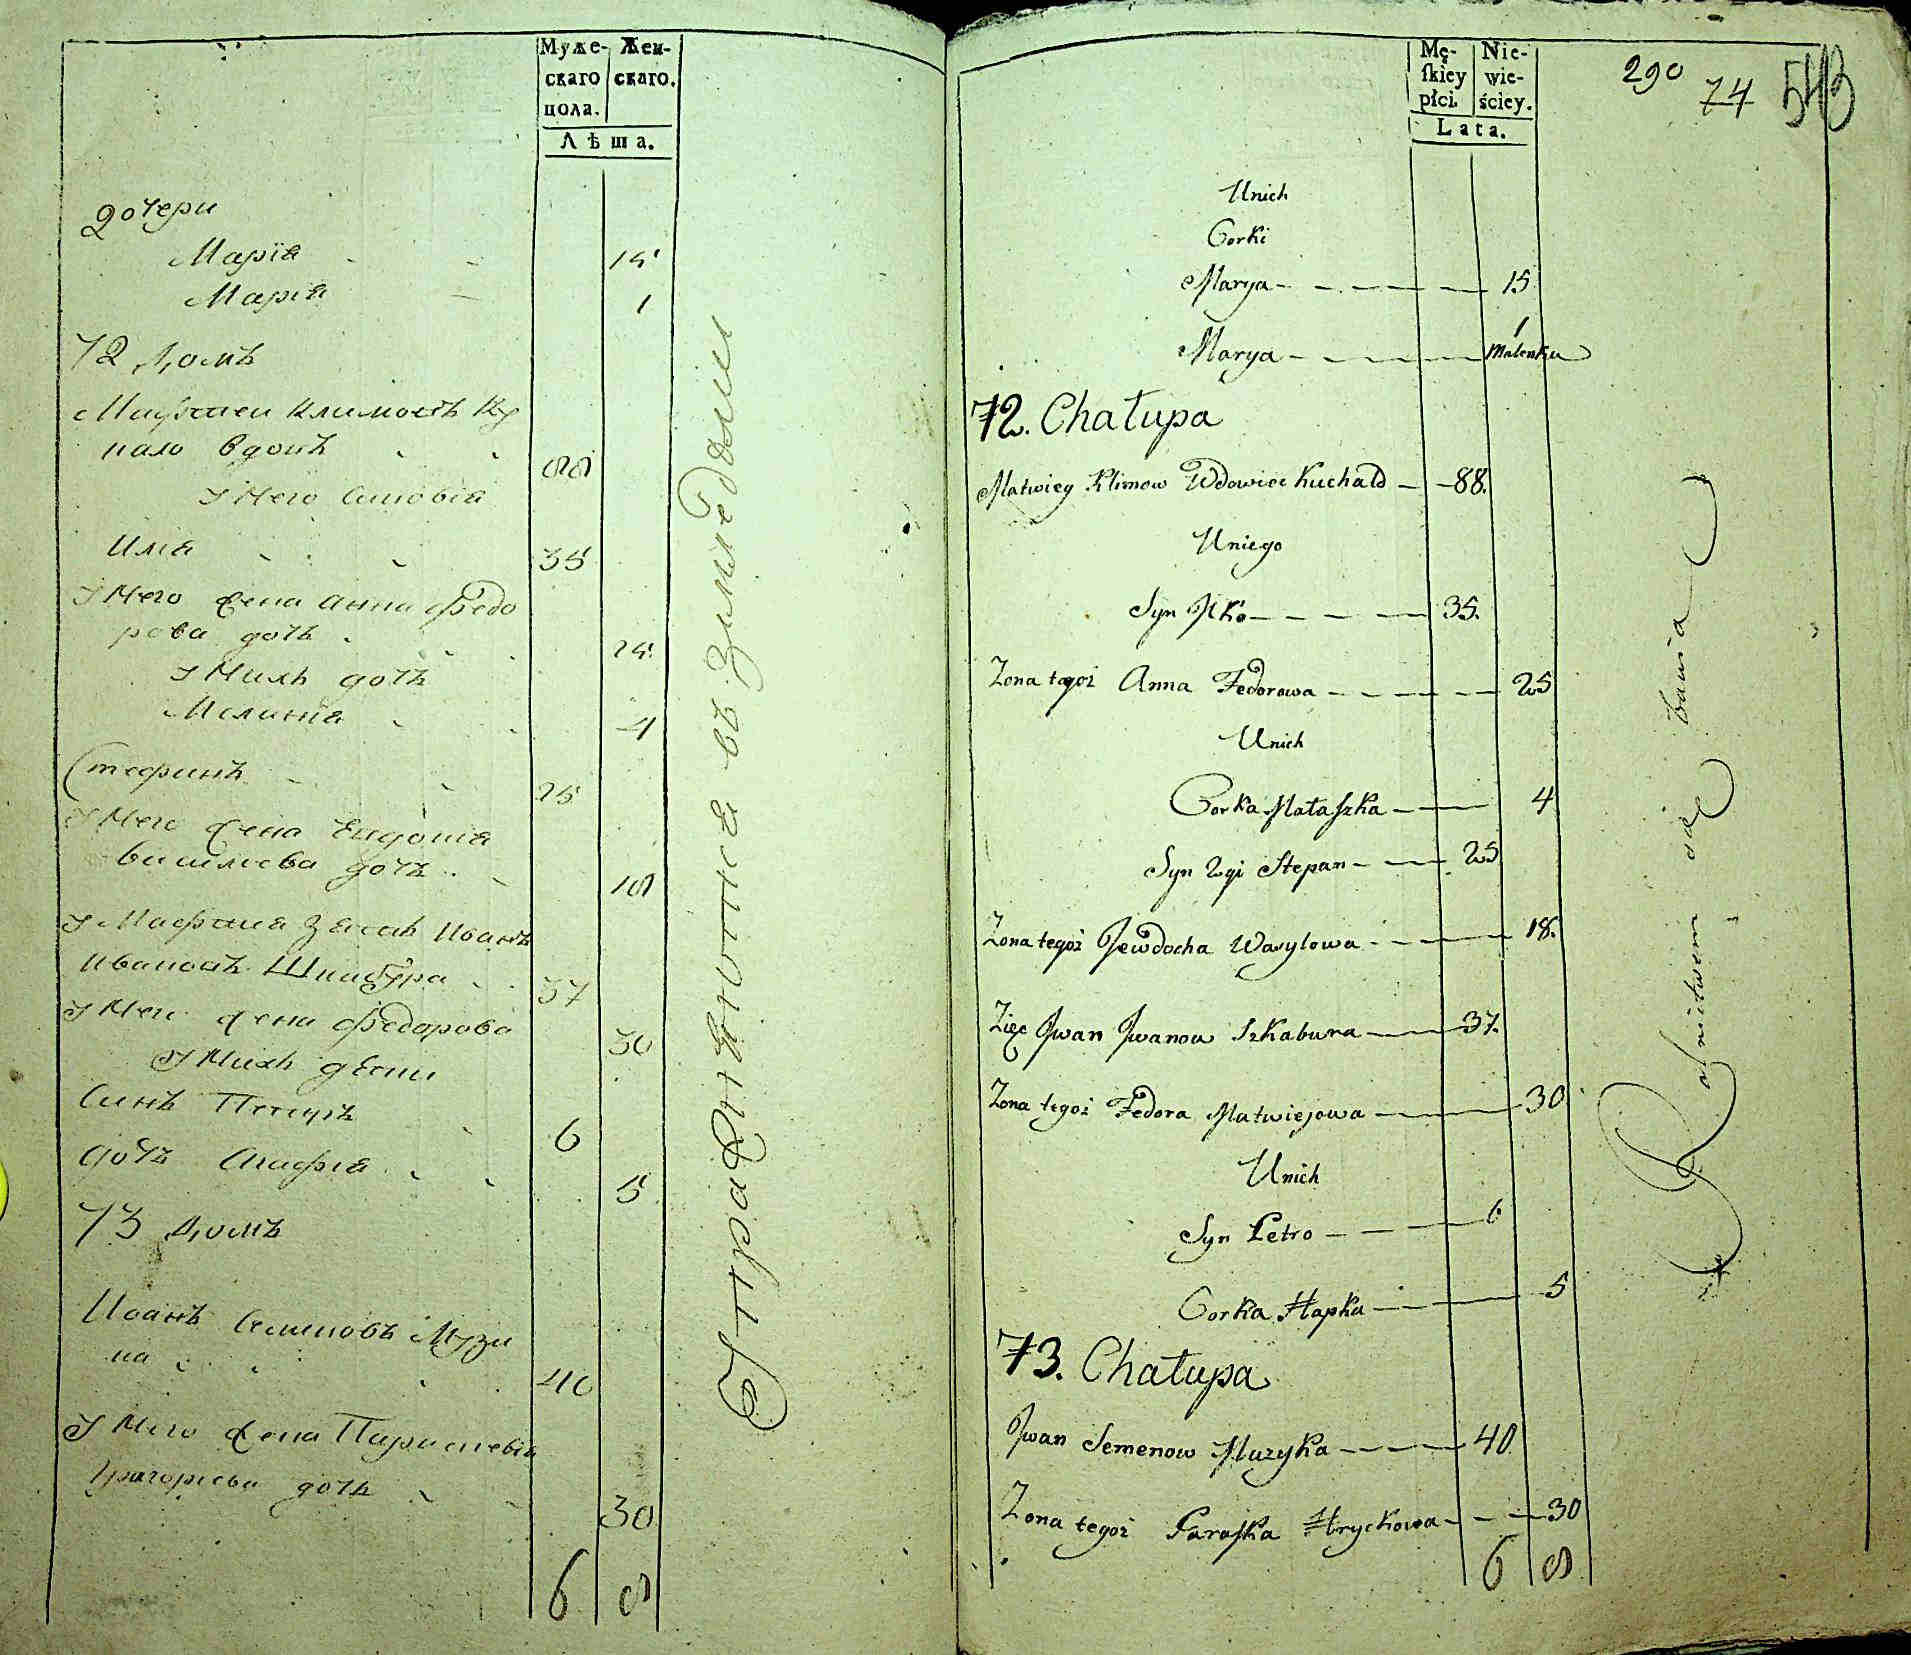 Муже-
скаго
пола.
Жен-
скаго.
Лѣта.
дочери
Марія 15
Марія 1
72 Домъ
Матѳей Климовъ Ку
хало вдовъ 88
У него синовіа
Илія 35
У него жена Анна Федо
рова дочь 25
У нихъ дочь
4
Стефанъ 25
У него жена Евдокия
василиева дочь 18
У Матѳия зять Иванъ
Ивановъ Шкабура 37
У него жена Федорова 30
У нихъ дѣти
Синъ Петръ 6
дочъ Агафія 5
73 Домъ
Иванъ Семеновъ Музи
ка 40
У него жена Параскевія
Григориева дочь 30
6 8
Упражнаютса въ земледелии
Mę-
ſkiey
płci.
Nie-
wie-
ściey.
Lata.
290 74 543
Unich
Corki
Marya 15
Marya 1 malenka
72. Chałupa
Matwiey Klimow Wdowiec Kuchało 88.
Uniego
Syn Ilko 35.
Zona tegoż Anna Fedorowa 25
Unich
Corka Małaszka 4
Syn 2gi Stepan 25
Zona tegoż Jewdocha Wasylowa 18.
Zięc Jwan Jwanow Szkabura 37.
Zona tegoż Fedora Matwiejowa 30
Unich
Syn Petro 6
Corka Hapka 5
73. Chałupa
Jwan Semenow Muzyka 40
Zona tegoż Paraska Hryckowa 30
6 8
Rolnictwem się bawią